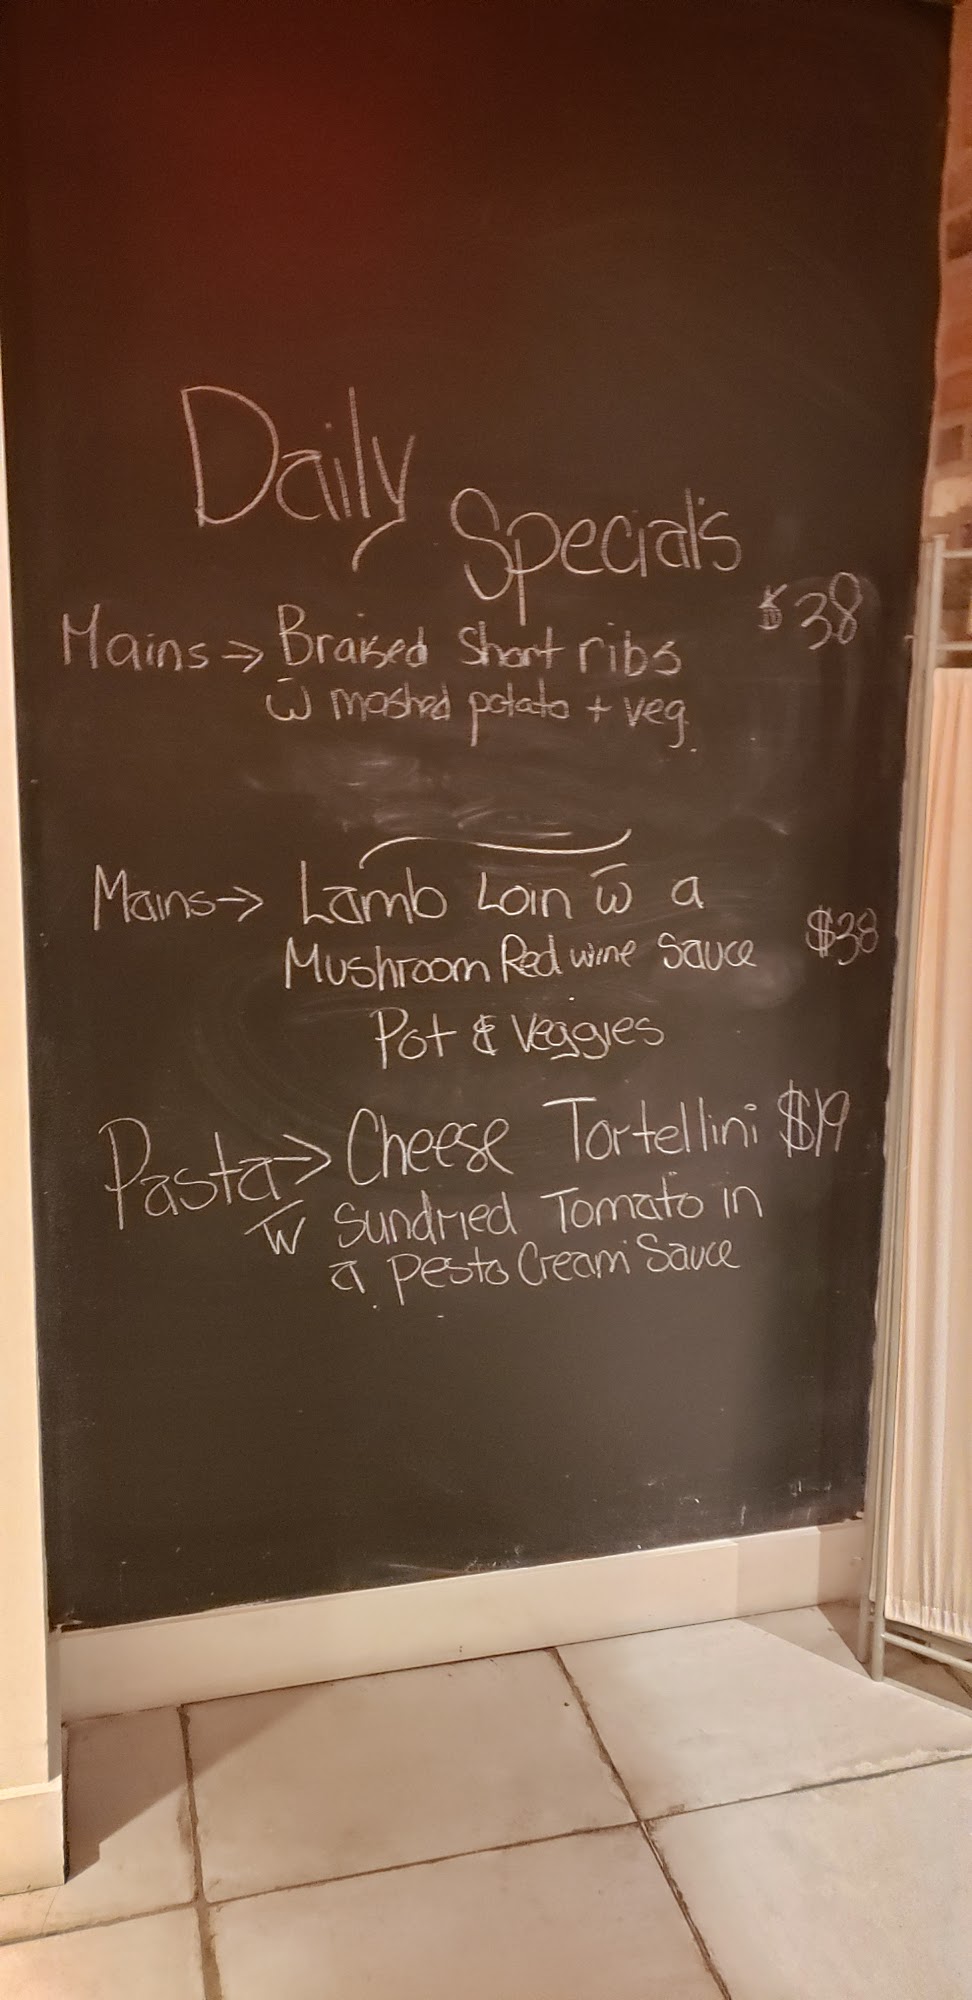 Daily Special's
Mains → Braised Short ribs $38
w̄ mashed potato + veg.
Mains → Lamb Loin w̄ a
Mushroom Red wine Sauce $38
Pot & Veggies
Pasta → Cheese Tortellini $19
w̄ Sundried Tomato in
a pesto Cream Sauce